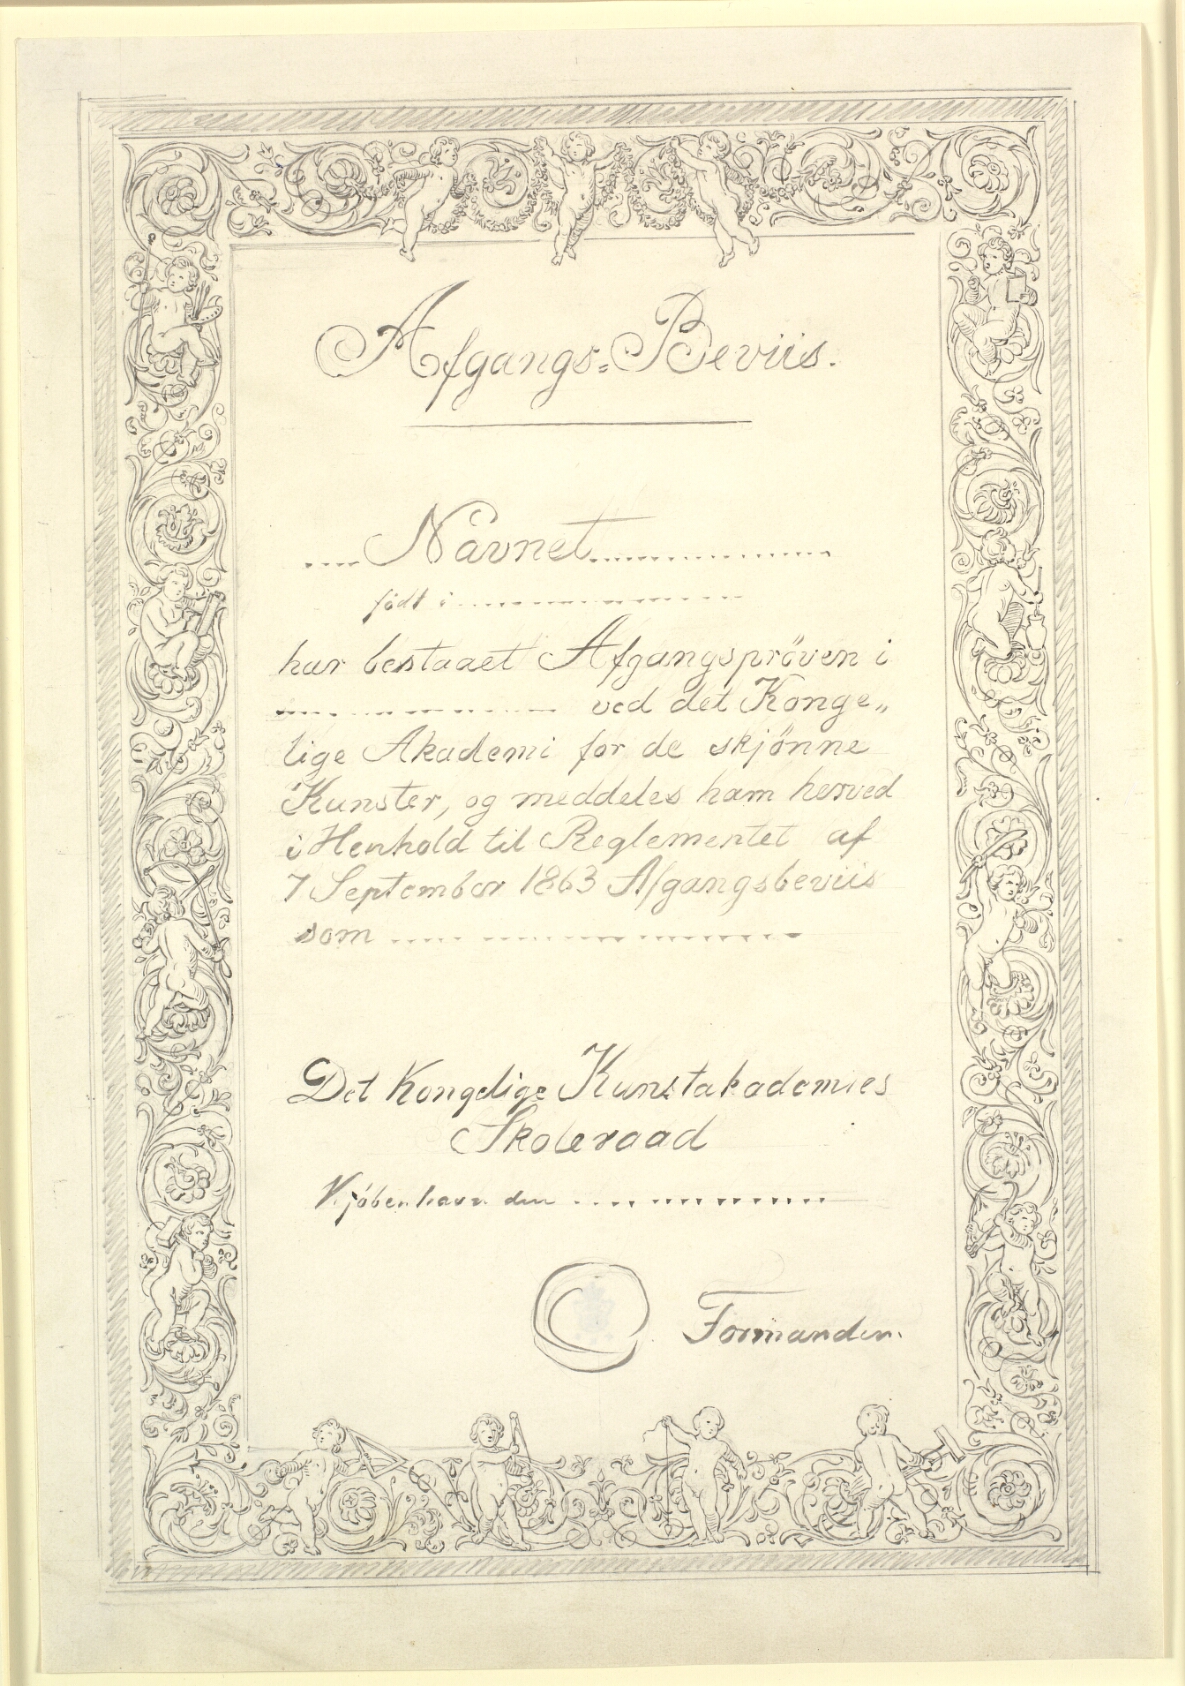 Afgangs=Beviis.
.... Navnet ..............
födt i ..............
har bestaaet Afgangspröven i
.............. ved det Konge„
lige Akademi for de skjönne
Kunster, og meddeles ham herved
i Henhold til Reglementet af
7 September 1863 Afgangsbeviis
som ..............
Det Kongelige Kunstakademies
Skoleraad
Kjöbenhavn den ..............
Formanden.